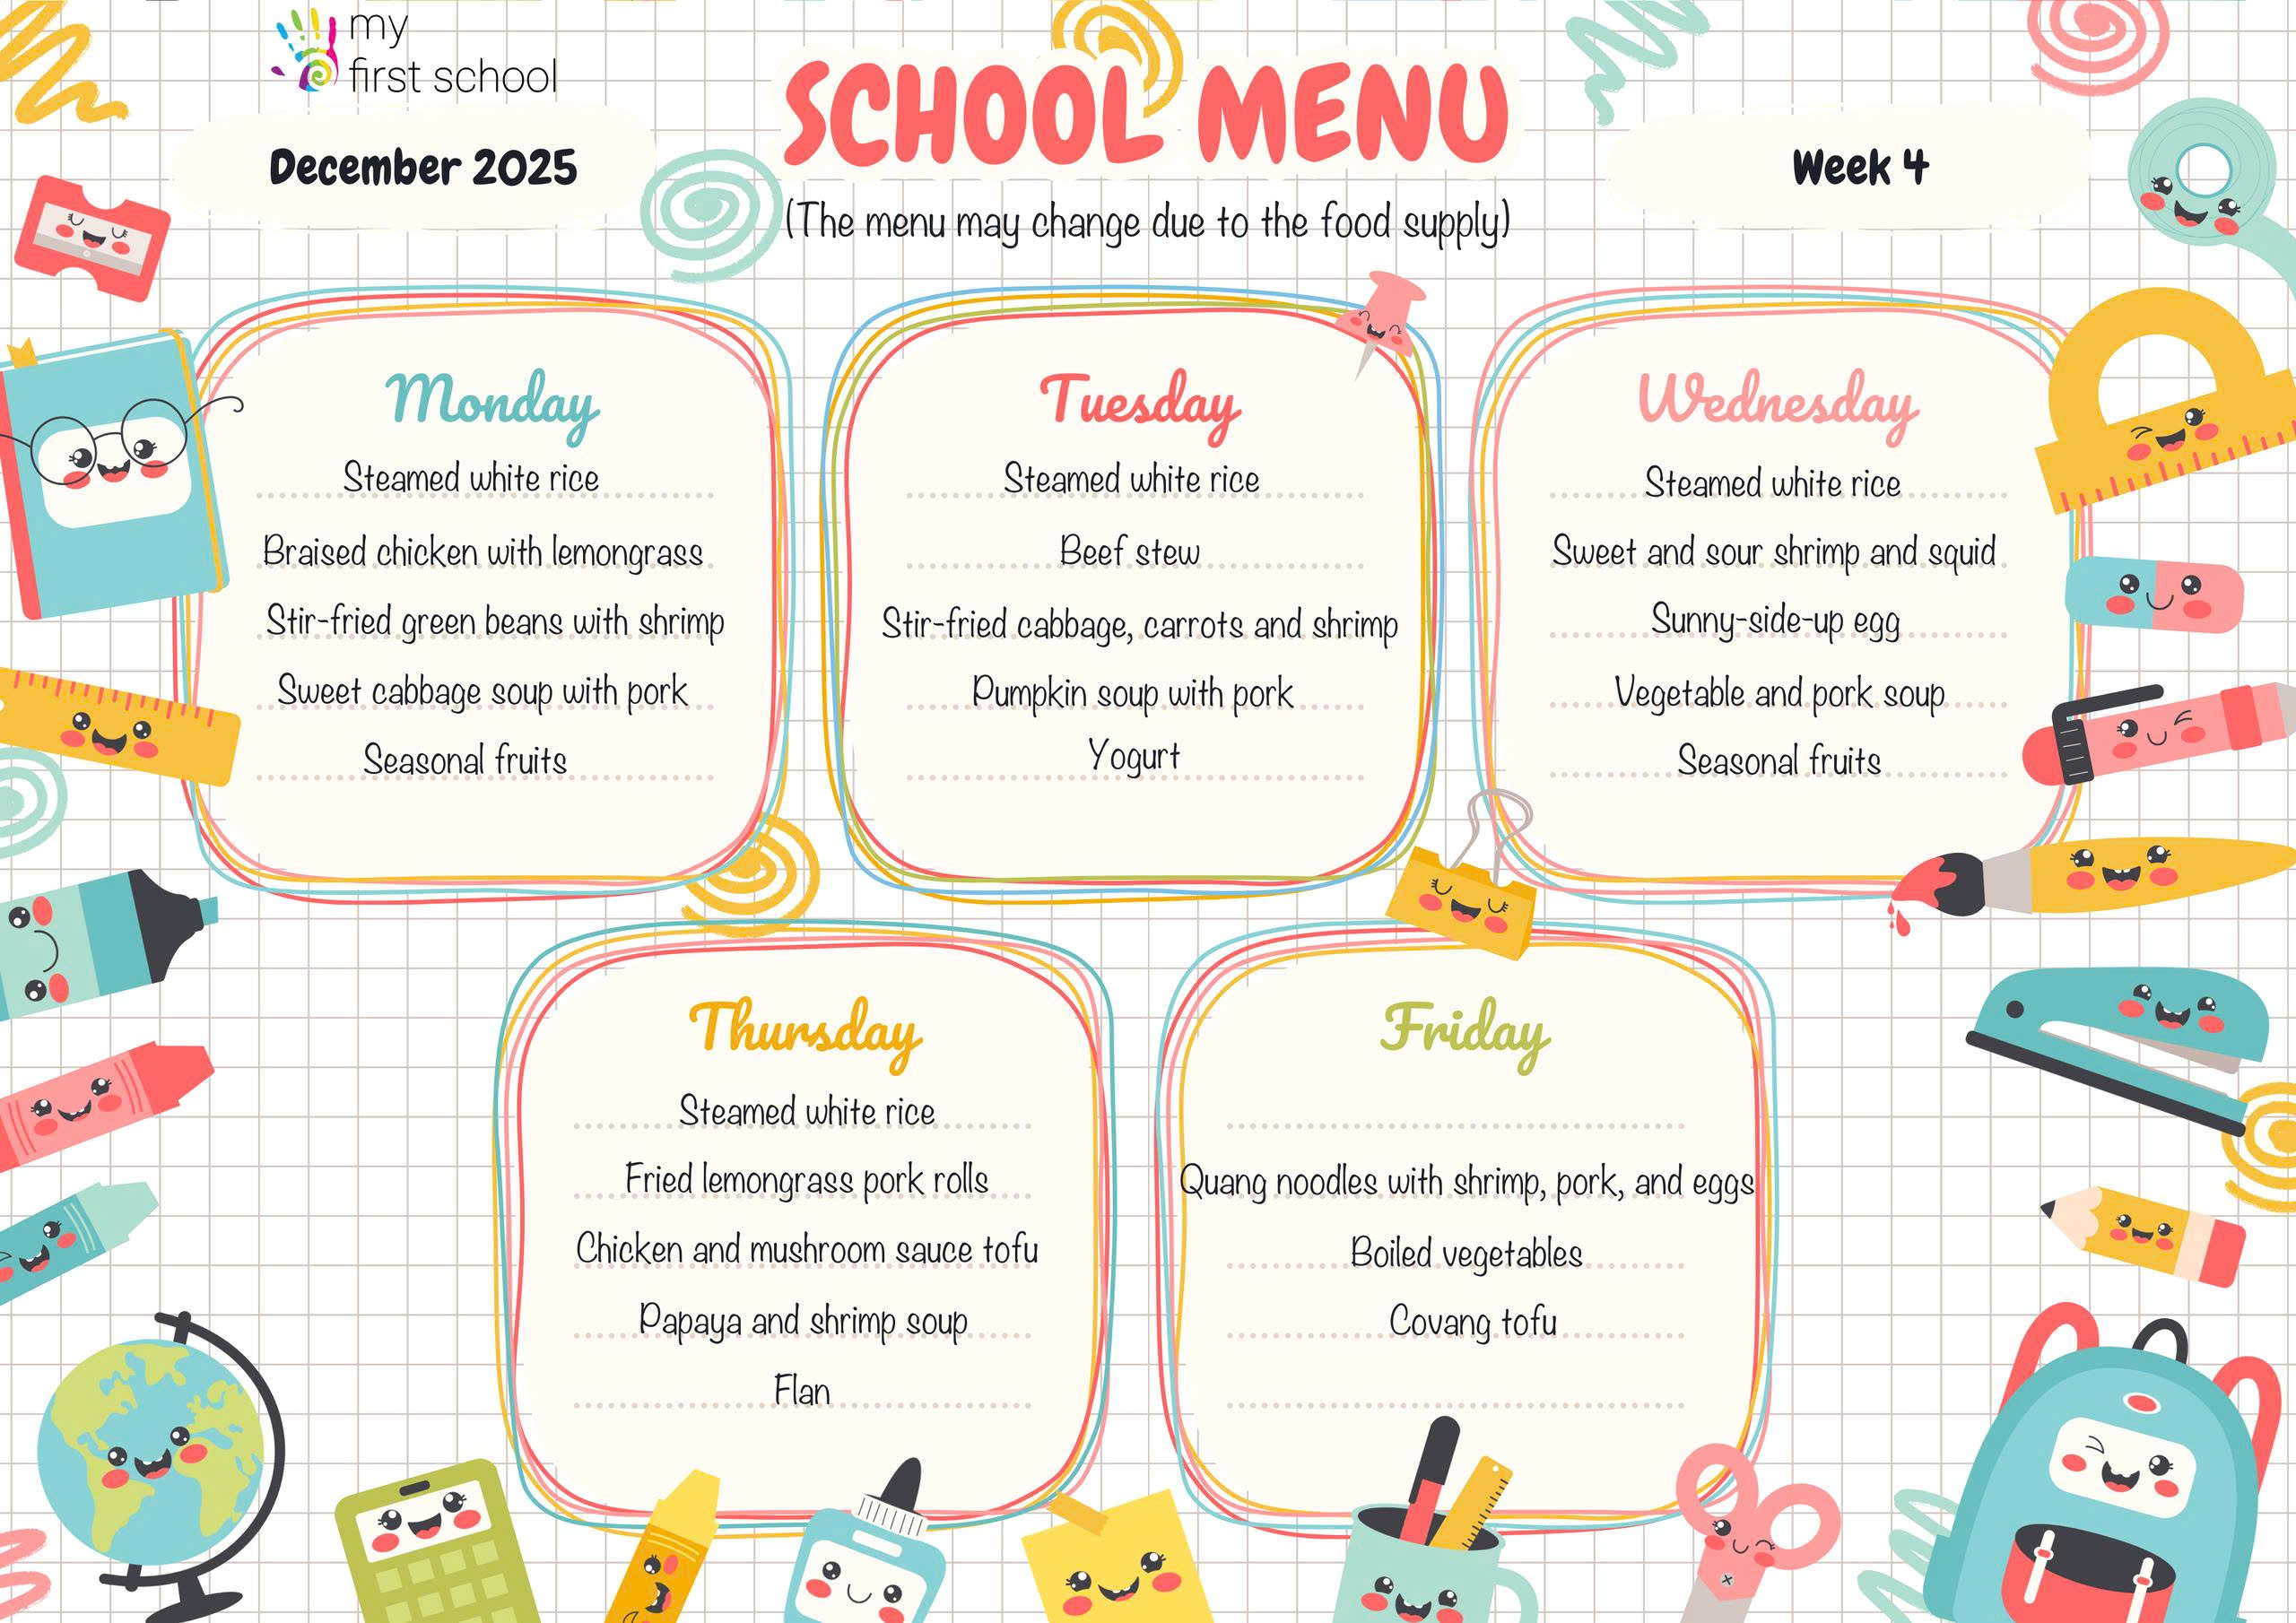 my
first school
December 2025
SCHOOL MENU
(The menu may change due to the food supply)
Week 4
Monday
Steamed white rice
Braised chicken with lemongrass
Stir-fried green beans with shrimp
Sweet cabbage soup with pork
Seasonal fruits
Tuesday
Steamed white rice
Beef stew
Stir-fried cabbage, carrots and shrimp
Pumpkin soup with pork
Yogurt
Wednesday
Steamed white rice
Sweet and sour shrimp and squid
Sunny-side-up egg
Vegetable and pork soup
Seasonal fruits
Thursday
Steamed white rice
Fried lemongrass pork rolls
Chicken and mushroom sauce tofu
Papaya and shrimp soup
Flan
Friday
Quang noodles with shrimp, pork, and eggs
Boiled vegetables
Covang tofu